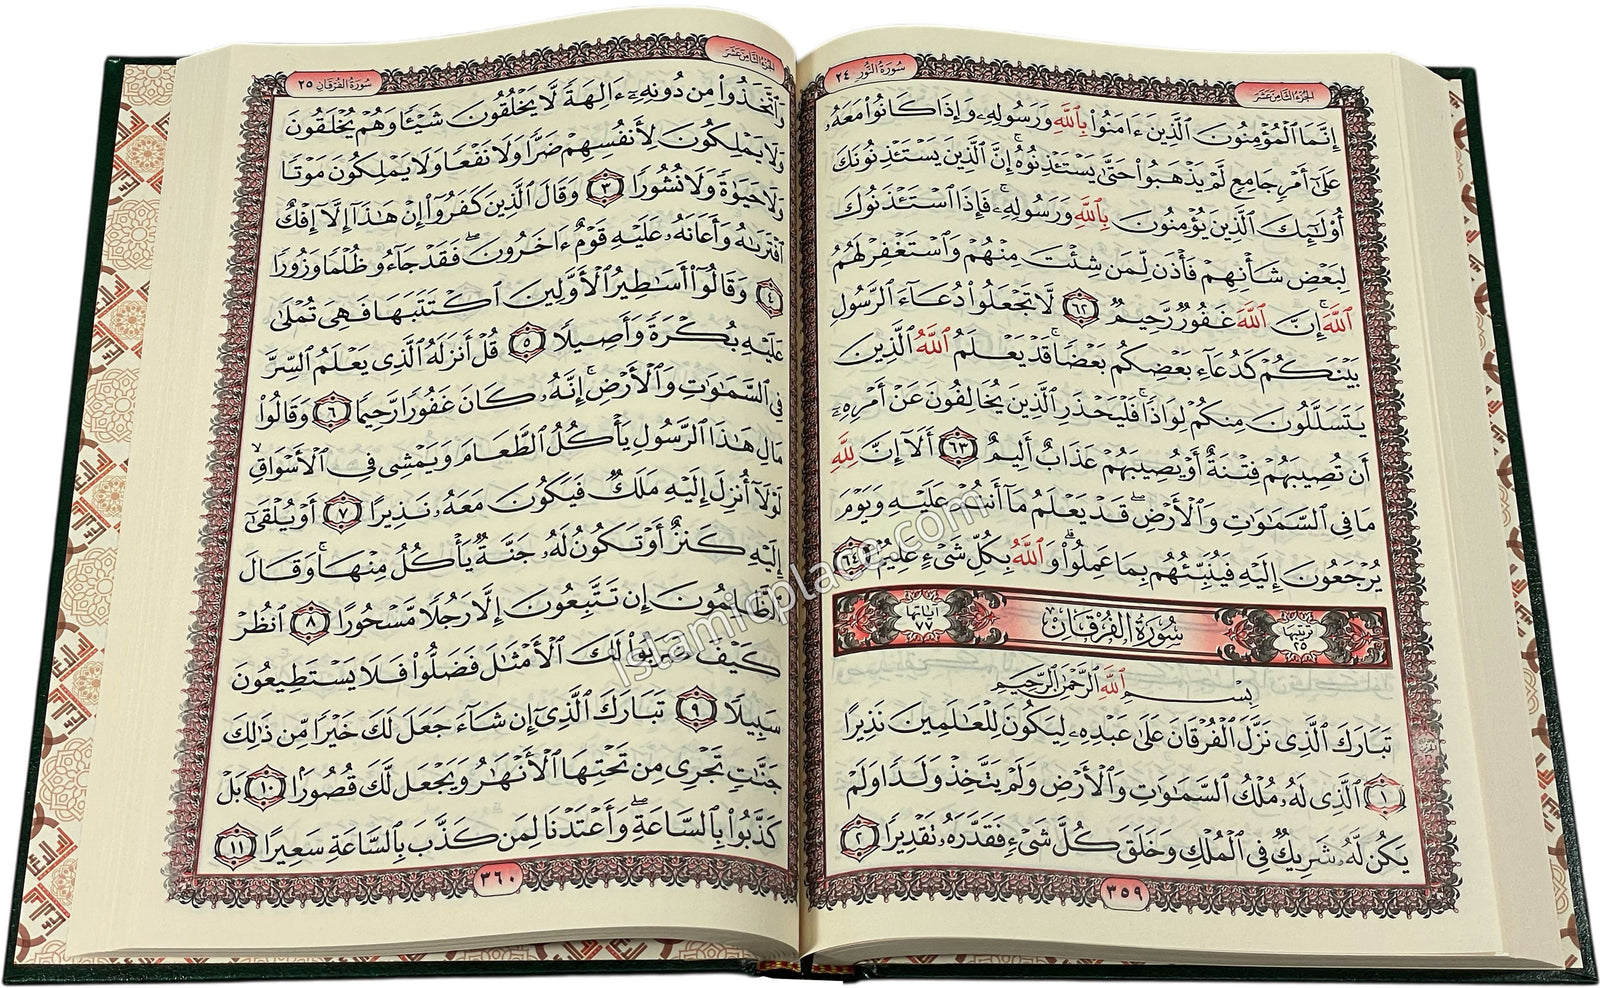 الجزء الثامن عشر
سورة النور ٢٤
إِنَّمَا الْمُؤْمِنُونَ الَّذِينَ ءَامَنُوا بِاللَّهِ وَرَسُولِهِ وَإِذَا كَانُوا مَعَهُ
عَلَىٰ أَمْرٍ جَامِعٍ لَّمْ يَذْهَبُوا حَتَّىٰ يَسْتَـْٔذِنُوهُ ۚ إِنَّ الَّذِينَ يَسْتَـْٔذِنُونَكَ
أُو۟لَـٰٓئِكَ الَّذِينَ يُؤْمِنُونَ بِاللَّهِ وَرَسُولِهِ ۚ فَإِذَا اسْتَـْٔذَنُوكَ
لِبَعْضِ شَأْنِهِمْ فَأْذَن لِّمَن شِئْتَ مِنْهُمْ وَاسْتَغْفِرْ لَهُمُ
اللَّهَ ۚ إِنَّ اللَّهَ غَفُورٌ رَّحِيمٌ ٦٢ لَّا تَجْعَلُوا دُعَآءَ الرَّسُولِ
بَيْنَكُمْ كَدُعَآءِ بَعْضِكُم بَعْضًا ۚ قَدْ يَعْلَمُ اللَّهُ الَّذِينَ
يَتَسَلَّلُونَ مِنكُمْ لِوَاذًا ۚ فَلْيَحْذَرِ الَّذِينَ يُخَالِفُونَ عَنْ أَمْرِهِ
أَن تُصِيبَهُمْ فِتْنَةٌ أَوْ يُصِيبَهُمْ عَذَابٌ أَلِيمٌ ٦٣ أَلَآ إِنَّ لِلَّهِ
مَا فِي السَّمَـٰوَٰتِ وَالْأَرْضِ ۖ قَدْ يَعْلَمُ مَآ أَنتُمْ عَلَيْهِ وَيَوْمَ
يُرْجَعُونَ إِلَيْهِ فَيُنَبِّئُهُم بِمَا عَمِلُوا ۗ وَاللَّهُ بِكُلِّ شَيْءٍ عَلِيمٌ ٦٤
ترتيبها ٢٥ سُورَةُ الْفُرْقَانِ آياتها ٧٧
بِسْمِ اللَّهِ الرَّحْمَـٰنِ الرَّحِيمِ
تَبَارَكَ الَّذِي نَزَّلَ الْفُرْقَانَ عَلَىٰ عَبْدِهِ لِيَكُونَ لِلْعَـٰلَمِينَ نَذِيرًا
١ الَّذِي لَهُ مُلْكُ السَّمَـٰوَٰتِ وَالْأَرْضِ وَلَمْ يَتَّخِذْ وَلَدًا وَلَمْ
يَكُن لَّهُ شَرِيكٌ فِي الْمُلْكِ وَخَلَقَ كُلَّ شَيْءٍ فَقَدَّرَهُ تَقْدِيرًا ٢
٣٥٩
الجزء الثامن عشر
سورة الفرقان ٢٥
وَاتَّخَذُوا مِن دُونِهِ ءَالِهَةً لَّا يَخْلُقُونَ شَيْـًٔا وَهُمْ يُخْلَقُونَ
وَلَا يَمْلِكُونَ لِأَنفُسِهِمْ ضَرًّا وَلَا نَفْعًا وَلَا يَمْلِكُونَ مَوْتًا
وَلَا حَيَوٰةً وَلَا نُشُورًا ٣ وَقَالَ الَّذِينَ كَفَرُوا إِنْ هَـٰذَآ إِلَّآ إِفْكٌ
افْتَرَىٰهُ وَأَعَانَهُ عَلَيْهِ قَوْمٌ ءَاخَرُونَ ۖ فَقَدْ جَآءُو ظُلْمًا وَزُورًا
٤ وَقَالُوٓا أَسَـٰطِيرُ الْأَوَّلِينَ اكْتَتَبَهَا فَهِيَ تُمْلَىٰ
عَلَيْهِ بُكْرَةً وَأَصِيلًا ٥ قُلْ أَنزَلَهُ الَّذِي يَعْلَمُ السِّرَّ
فِي السَّمَـٰوَٰتِ وَالْأَرْضِ ۚ إِنَّهُ كَانَ غَفُورًا رَّحِيمًا ٦ وَقَالُوا
مَالِ هَـٰذَا الرَّسُولِ يَأْكُلُ الطَّعَامَ وَيَمْشِي فِي الْأَسْوَاقِ ۙ
لَوْلَآ أُنزِلَ إِلَيْهِ مَلَكٌ فَيَكُونَ مَعَهُ نَذِيرًا ٧ أَوْ يُلْقَىٰٓ
إِلَيْهِ كَنزٌ أَوْ تَكُونُ لَهُ جَنَّةٌ يَأْكُلُ مِنْهَا ۚ وَقَالَ
الظَّـٰلِمُونَ إِن تَتَّبِعُونَ إِلَّا رَجُلًا مَّسْحُورًا ٨ انظُرْ
كَيْفَ ضَرَبُوا لَكَ الْأَمْثَـٰلَ فَضَلُّوا فَلَا يَسْتَطِيعُونَ
سَبِيلًا ٩ تَبَارَكَ الَّذِيٓ إِن شَآءَ جَعَلَ لَكَ خَيْرًا مِّن ذَٰلِكَ
جَنَّـٰتٍ تَجْرِي مِن تَحْتِهَا الْأَنْهَـٰرُ وَيَجْعَل لَّكَ قُصُورًا ١٠ بَلْ
كَذَّبُوا بِالسَّاعَةِ ۖ وَأَعْتَدْنَا لِمَن كَذَّبَ بِالسَّاعَةِ سَعِيرًا ١١
٣٦٠
islamicplace.com